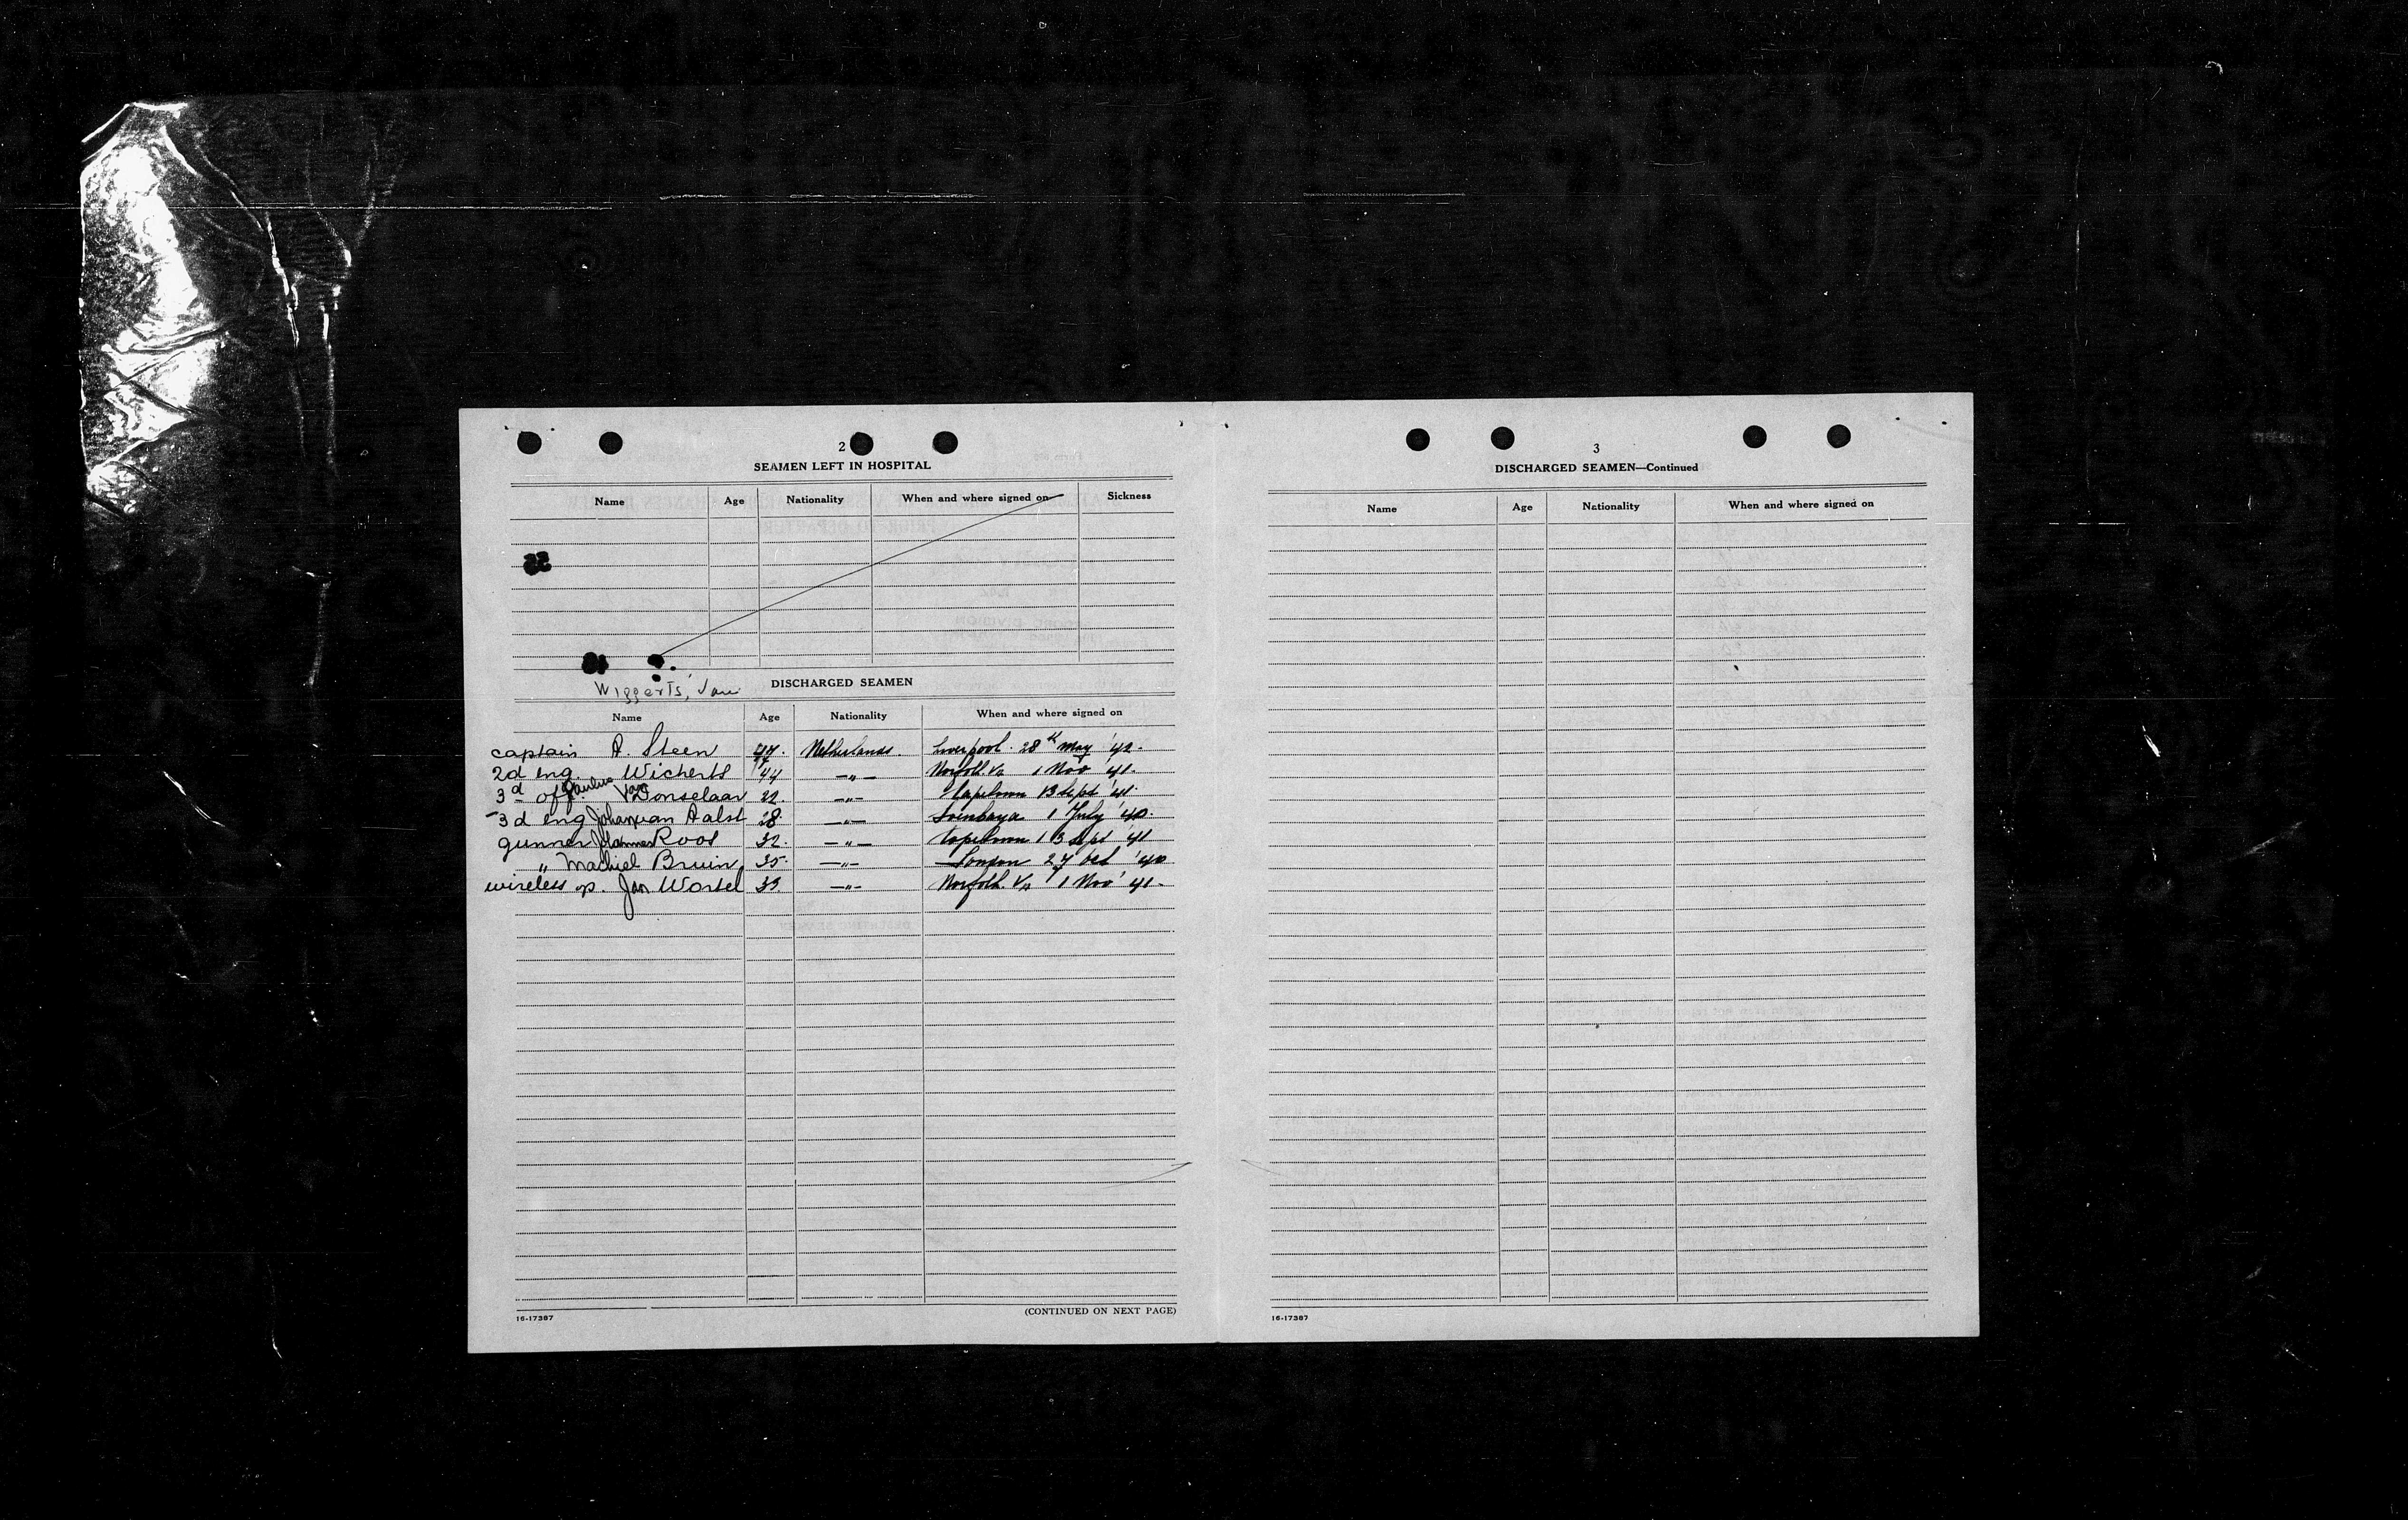 2
SEAMEN LEFT IN HOSPITAL
Name Age Nationality When and where signed on Sickness
Wiggerts, Jan
DISCHARGED SEAMEN
Name Age Nationality When and where signed on
captain A. Steen 47. Netherlands. Liverpool. 28th May '42.
2d eng. Wicherts 44 —„— Norfolk. Va 1 Nov '41.
3d of Paulus van Donselaar 22. —„— Capetown 13 Sept '41.
3d eng Johan van Aalst 28. —„— Soerabaya 1 July '40.
gunner Johannes Roos 32. —„— Capetown 13 Sept '41
„ Machiel Bruin 35. —„— London 27 Oct '40
wireless op. Jan Worsel 33. —„— Norfolk. Va 1 Nov '41.
(CONTINUED ON NEXT PAGE)
16-17387
3
DISCHARGED SEAMEN—Continued
Name Age Nationality When and where signed on
16-17387